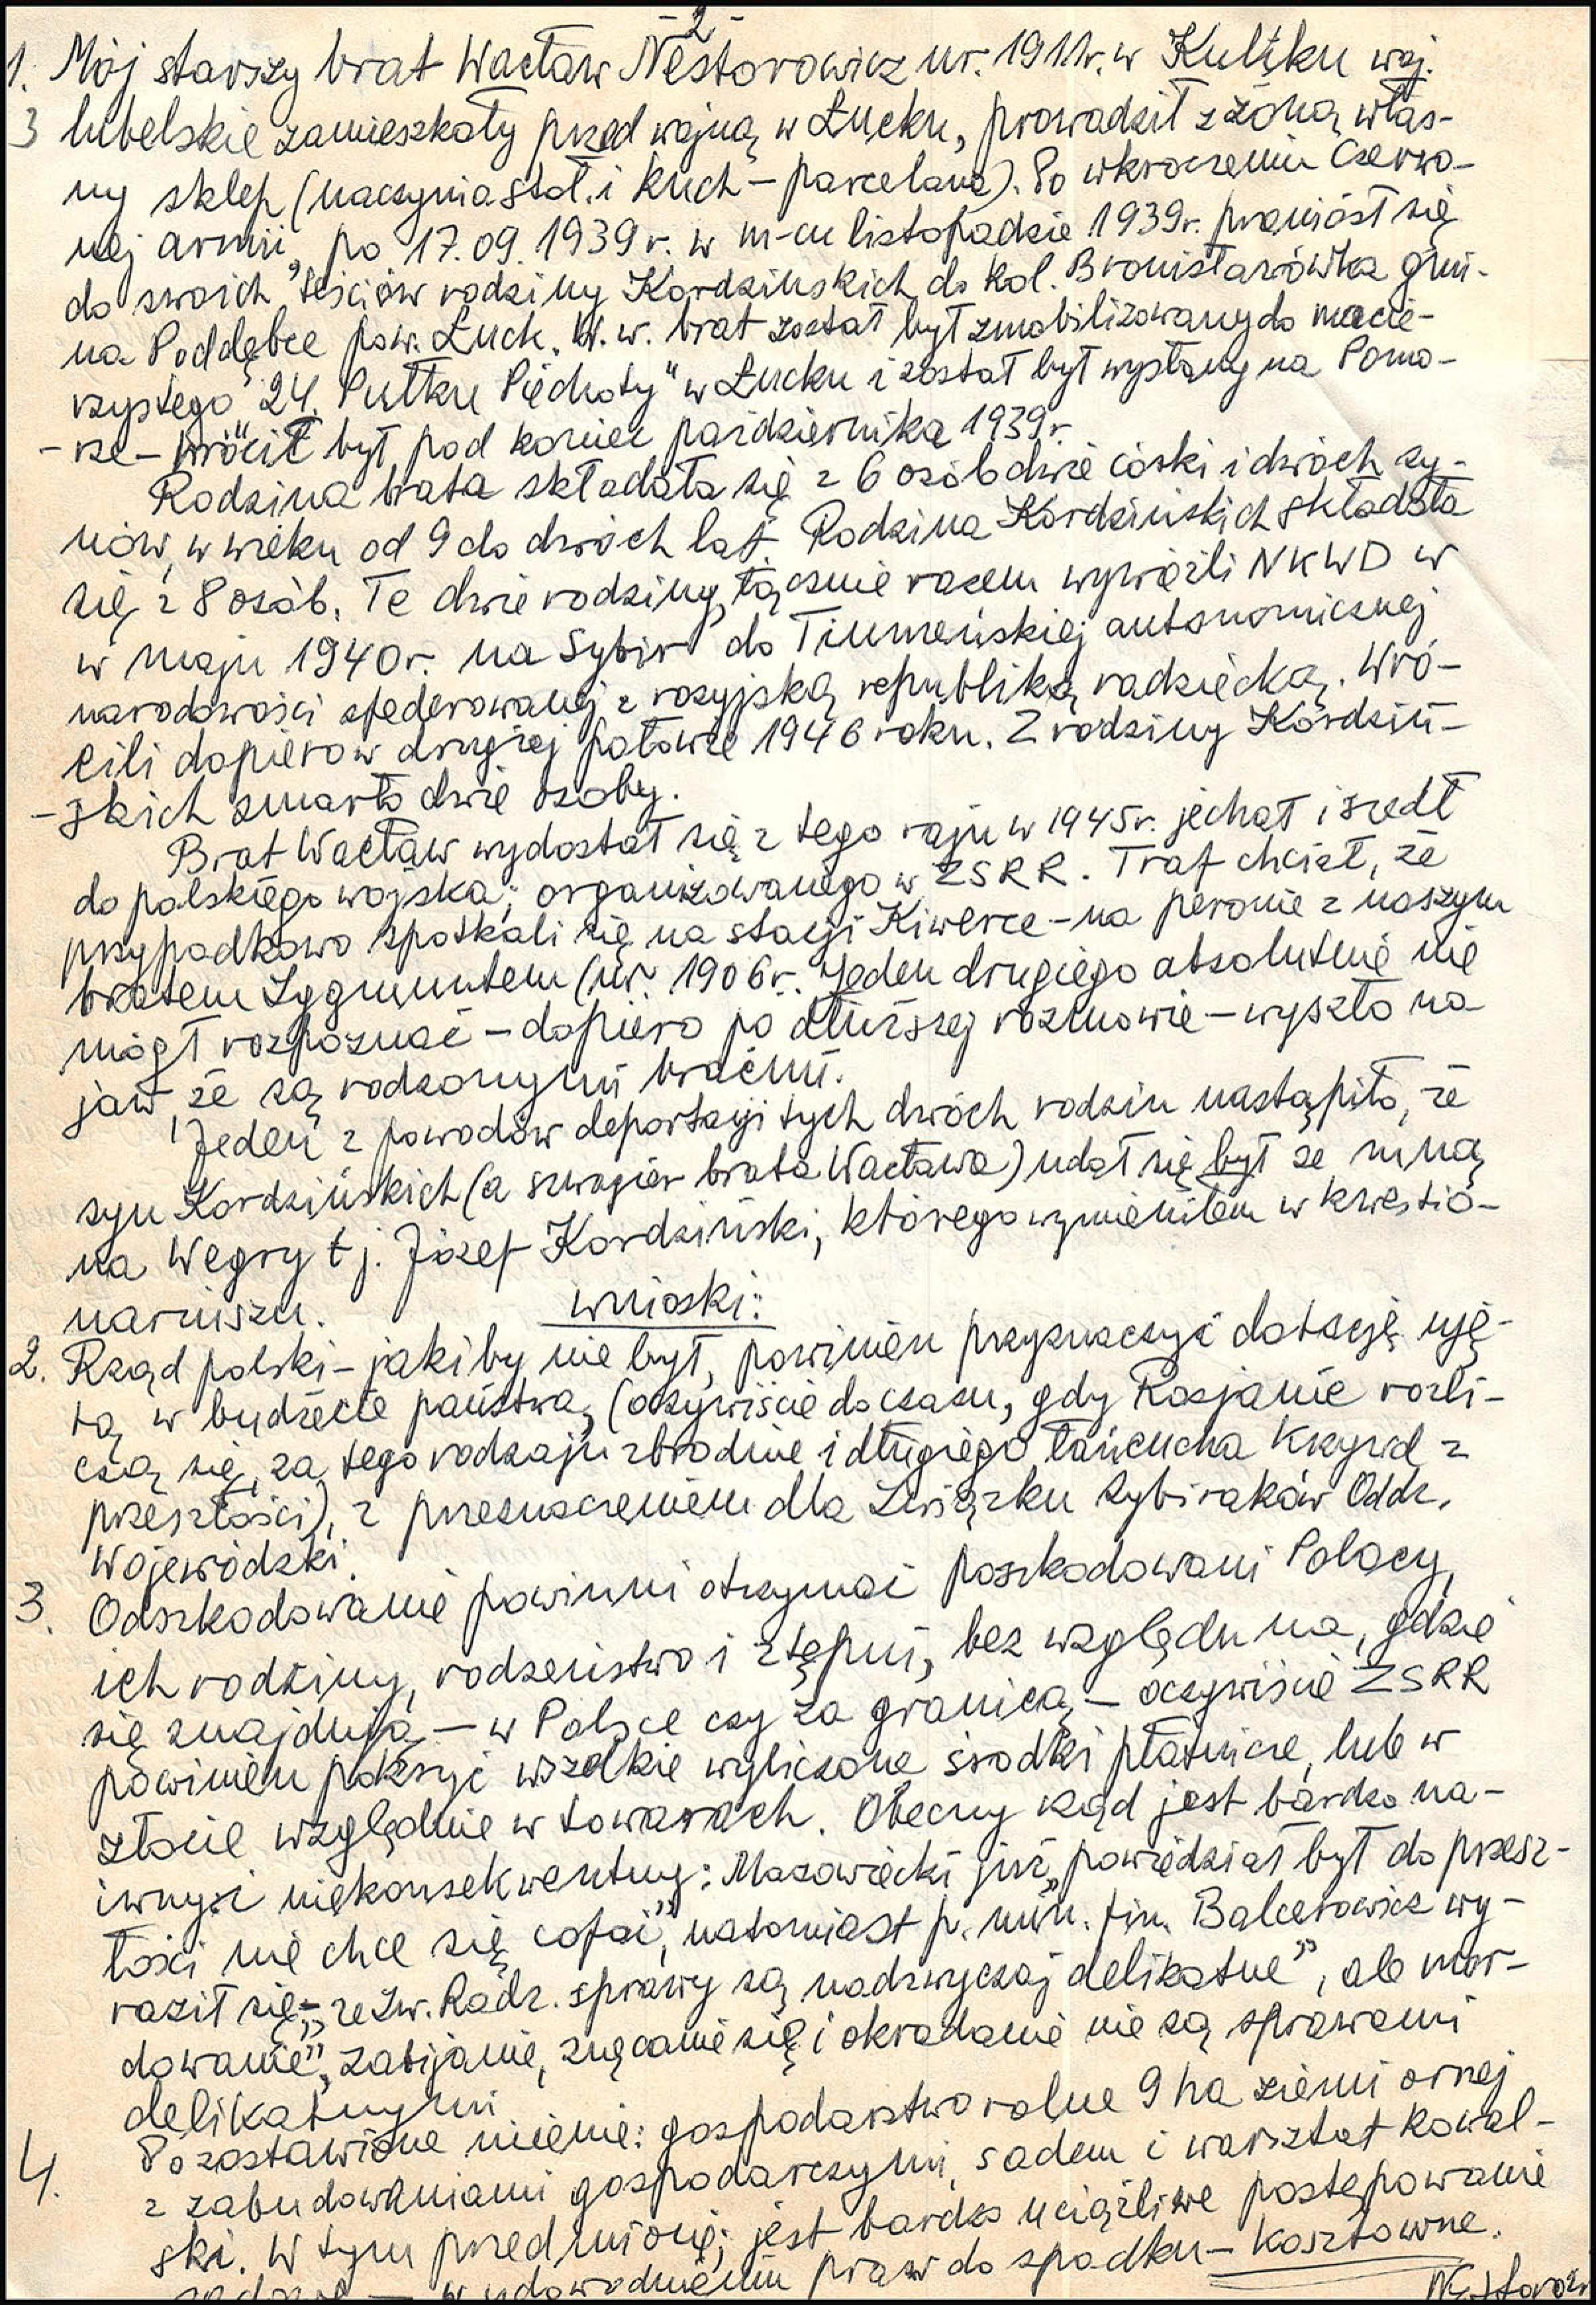 -2-
1. Mój starszy brat Wacław Nestorowicz ur. 1911r. w Kuliku woj.
3 lubelskie zamieszkały przed wojną w Łucku, prowadził z żoną włas-
ny sklep (naczynia stoł. i kuch - parcelana). Po wkroczeniu Czerwo-
nej armii, po 17.09.1939r. w m-cu listopadzie 1939r. przeniósł się
do swoich teściów rodziny Kordzińskich do kol. Bronisławówka gmi-
na Poddębce pow. Łuck. W. w. brat został był zmobilizowany do macie-
rzystego "24. Pułku Piechoty" w Łucku i został był wysłany na Pomo-
-rze - wrócił był pod koniec października 1939r.
Rodzina brata składała się z 6 osób dwie córki i dwóch sy-
nów, w wieku od 9 do dwóch lat. Rodzina Kordzińskich składała
się z 8 osób. Te dwie rodziny, łącznie razem wywieźli NKWD w
w maju 1940r. na Sybir do Tiumeńskiej autonomicznej
narodowości sfederowanej z rosyjską republiką radziecką. Wró-
cili dopiero w drugiej połowie 1946 roku. Z rodziny Kordziń-
-skich zmarło dwie osoby.
Brat Wacław wydostał się z tego raju w 1945r. jechał i szedł
do polskiego wojska, organizowanego w ZSRR. Traf chciał, że
przypadkowo spotkali się na stacji Kiwerce - na peronie z naszym
bratem Zygmuntem (ur. 1906r. Jeden drugiego absolutnie nie
mógł rozpoznać - dopiero po dłuższej rozmowie - wyszło na
jaw, że są rodzonymi braćmi.
Jeden z powodów deportacji tych dwóch rodzin nastąpiło, że
syn Kordzińskich (a szwagier brata Wacława) udał się był ze mną
na Węgry t j. Józef Kordziński, którego wymieniłem w kwestio-
nariuszu.
wnioski:
2. Rząd polski - jakiby nie był, powinien przyznaczyć dotację uję-
tą w budżecie państwa, (oczywiście do czasu, gdy Rosjanie rozli-
czą się, za tego rodzaju zbrodnie i długiego łańcucha krzywd z
przeszłości), z przeznaczeniem dla Związku Sybiraków Oddz.
Wojewódzki.
3. Odszkodowanie powinni otrzymać poszkodowani Polacy,
ich rodziny, rodzeństwo i zstępni, bez względu na, gdzie
się znajdują - w Polsce czy za granicą - oczywiście ZSRR
powinien pokryć wszelkie wyliczone środki płatnicze, lub w
złocie względnie w towarach. Obecny rząd jest bardzo na-
iwny i niekonsekwentny: Mazowiecki już "powiedział był do przesz-
łości nie chce się cofać", natomiast p. min. fin. Balcerowicz wy-
raził się - "że Zw. Radz. sprawy są nadzwyczaj delikatne", ale mor-
dowanie", zabijanie, znęcanie się i okradanie nie są sprawami
delikatnymi
4. Pozostawione mienie: gospodarstwo rolne 9 ha ziemi ornej
z zabudowaniami gospodarczymi, sadem i warsztat kowal-
ski. W tym przedmiocie; jest bardzo uciążliwe postępowanie
sądowe - w udowodnieniu praw do spadku - kosztowne.